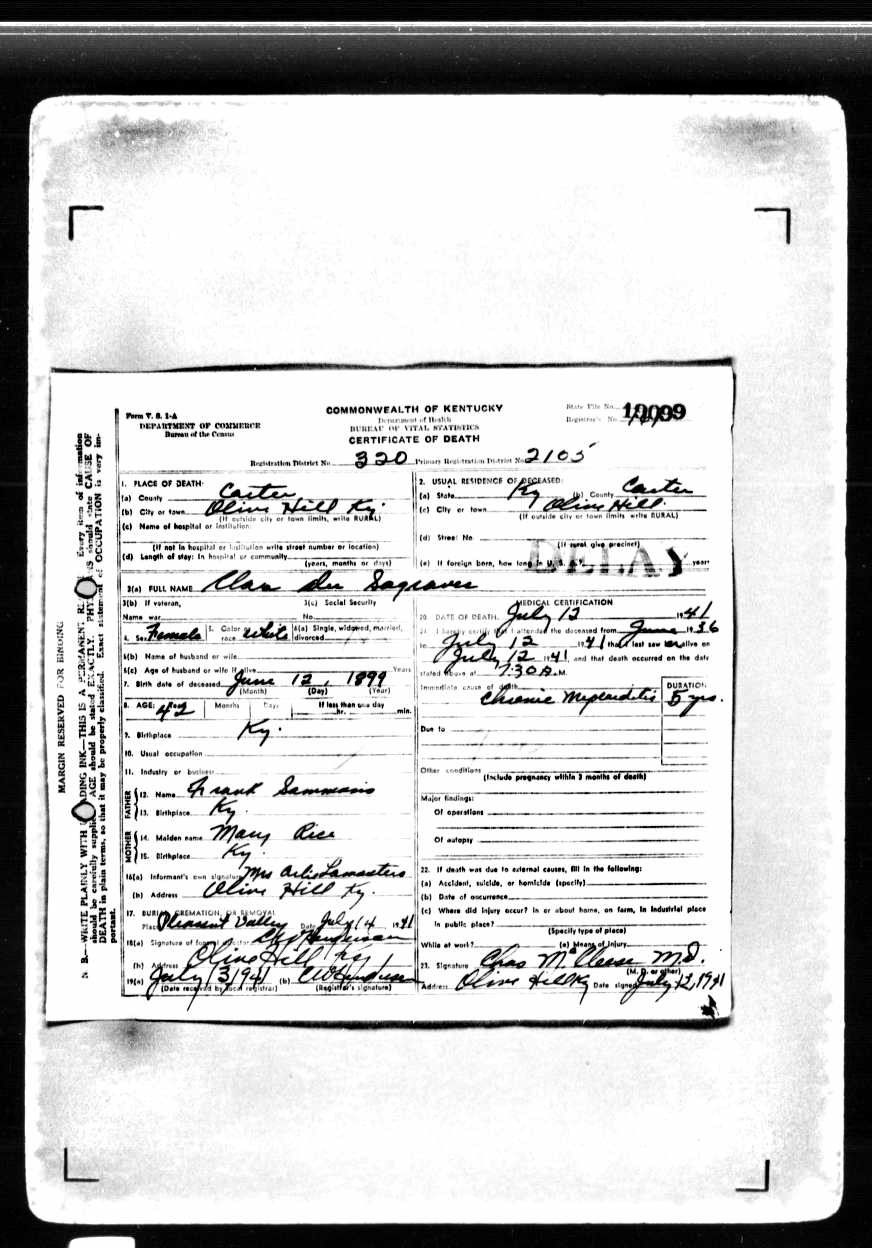 MARGIN RESERVED FOR BINDING
N. B.—WRITE PLAINLY WITH UNFADING INK—THIS IS A PERMANENT Every item of information
should be carefully supplied. AGE should be stated EXACTLY. should state CAUSE OF
DEATH in plain terms, so that it may be properly classified. Exact statement of OCCUPATION is very im-
portant.
Form V. S. 1-A
DEPARTMENT OF COMMERCE
Bureau of the Census
COMMONWEALTH OF KENTUCKY
Department of Health
BUREAU OF VITAL STATISTICS
CERTIFICATE OF DEATH
State File No.
Registrar's No.
Registration District No. 320 Primary Registration District No. 2105
1. PLACE OF DEATH:
(a) County Carter
(b) City or town Olive Hill Ky.
(If outside city or town limits, write RURAL)
(c) Name of hospital or institution:
(If not in hospital or institution write street number or location)
(d) Length of stay: In hospital or community
(years, months or days)
2. USUAL RESIDENCE OF DECEASED:
(a) State Ky (b) County Carter
(c) City or town Olive Hill
(If outside city or town limits write RURAL)
(d) Street No.
(If rural give precinct)
(e) If foreign born, how long in U. S. A.? years
DELAY
3(a) FULL NAME
3(b) If veteran,
Name war
3(c) Social Security
No.
4. Sex Female 5. Color race White 6(a) Single, widowed, married,
divorced
6(b) Name of husband or wife
6(c) Age of husband or wife if alive Years
7. Birth date of deceased June 12, 1899
(Month) (Day) (Year)
8. AGE: Years 42 Months Days If less than one day
hr. min.
9. Birthplace Ky.
10. Usual occupation
11. Industry or business
FATHER
12. Name Frank Sammons
13. Birthplace Ky.
MOTHER
14. Maiden name Mary Rice
15. Birthplace Ky.
16(a) Informant's own signature Mrs Arlie Lamasters
(b) Address Olive Hill Ky.
17. BURIAL, CREMATION, OR REMOVAL
Place Pleasant Valley Date July 14 1941
18(a) Signature of funeral director
(b) Address Olive Hill Ky
19(a) July 13/1941 (b)
(Date received by local registrar) (Registrar's signature)
MEDICAL CERTIFICATION
20. DATE OF DEATH. July 12 1941
21. I hereby certify that I attended the deceased from June 1936
to July 12 1941 that I last saw alive on
July 12 1941, and that death occurred on the date
stated above at 7:30 A.M.
Immediate cause of death
DURATION
Chronic Myocarditis 5 yrs.
Due to
Other conditions
(Include pregnancy within 3 months of death)
Major findings:
Of operations
Of autopsy
22. If death was due to external causes, fill in the following:
(a) Accident, suicide, or homicide (specify)
(b) Date of occurrence
(c) Where did injury occur? In or about home, on farm, in industrial place
in public place?
(Specify type of place)
While at work? (e) Means of injury
23. Signature Chas M. Cleese M.D.
(M. D. or other)
Address Olive Hill Ky Date signed July 12, 1941